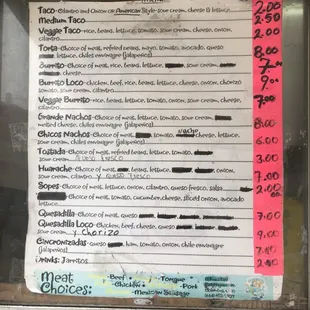 Taco-Cilantro and Onion or American Style-sour cream, cheese & lettuce 2.00
Medium Taco 2.50
Veggie Taco-rice, beans, lettuce, tomato, sour cream, cheese, onion, cilantro 2.00
Torta-Choice of meat, refried beans, mayo, tomato, avocado, queso
lettuce, chiles envinagre (jalapeños) 8.00
Burrito-Choice of meat, rice, beans, lettuce, cheese 7.00
Burrito Loco-chicken, beef, rice, beans, lettuce, cheese, onion, chorizo
tomato, sour cream, cilantro 9.00
Veggie Burrito-rice, beans, lettuce, tomato, onion, sour cream, cheese, 7.00
Grande Nachos-Choice of meat, beans, lettuce, tomato, sour cream,
melted cheese, chiles envinagre (jalapeños) 8.00
Chicos Nachos-Choice of meat, tomato, nacho cheese 6.00
Tostada-Choice of meat, refried beans, lettuce, tomato,
sour cream, queso fresco 3.00
Huarache-Choice of meat, beans, lettuce, onion,
sour cream, y queso fresco 7.00
Sopes-Choice of meat, lettuce, onion, cilantro, queso fresco, salsa 2.00
Choice of meat, tomato, cucumber, cheese, sliced onion, avocado
lettuce
Quesadilla-Choice of meat, queso 7.00
Quesadilla Loco-Choice of meat, chicken, beef, cheese
sour cream y chorizo 9.00
Cincronizadas-queso ham, tomato, onion, chile envinagre
(jalapeños)
Drinks: Jarritos
Meat
Choices:
•Beef•
•Chicken•
•Mexican Sausage
Tongue
•Pork